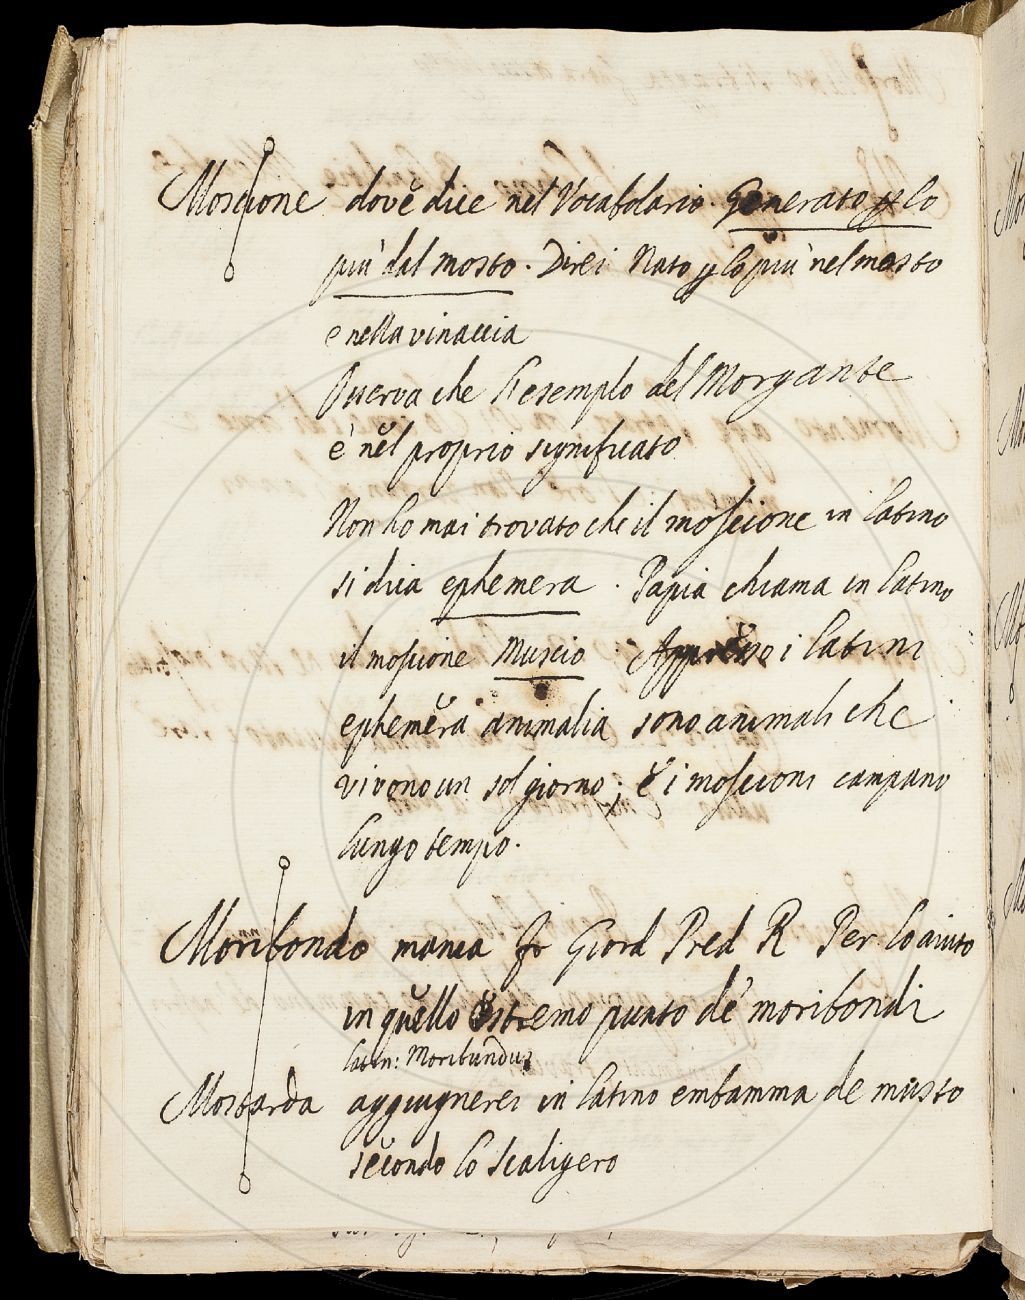 Moscione dove dice nel Vocabolario. Generato p lo
più dal mosto. Direi Nato p lo più nel mosto
e nella vinaccia
Osserva che l'esemplo del Morgante
è nel proprio significato
Non ho mai trovato che il moscione in latino
si dica ephemera. Papia chiama in latino
il moscione Muscio Appresso i latini
ephemera animalia sono animali che
vivono un sol giorno; e i moscioni campano
lungo tempo.
Moribondo manca Fr Giord Pred R Per lo aiuto
in quello estremo punto de' moribondi
latin: Moribundus
Mostarda aggiugnerei in latino embamma de musto
secondo lo Scaligero